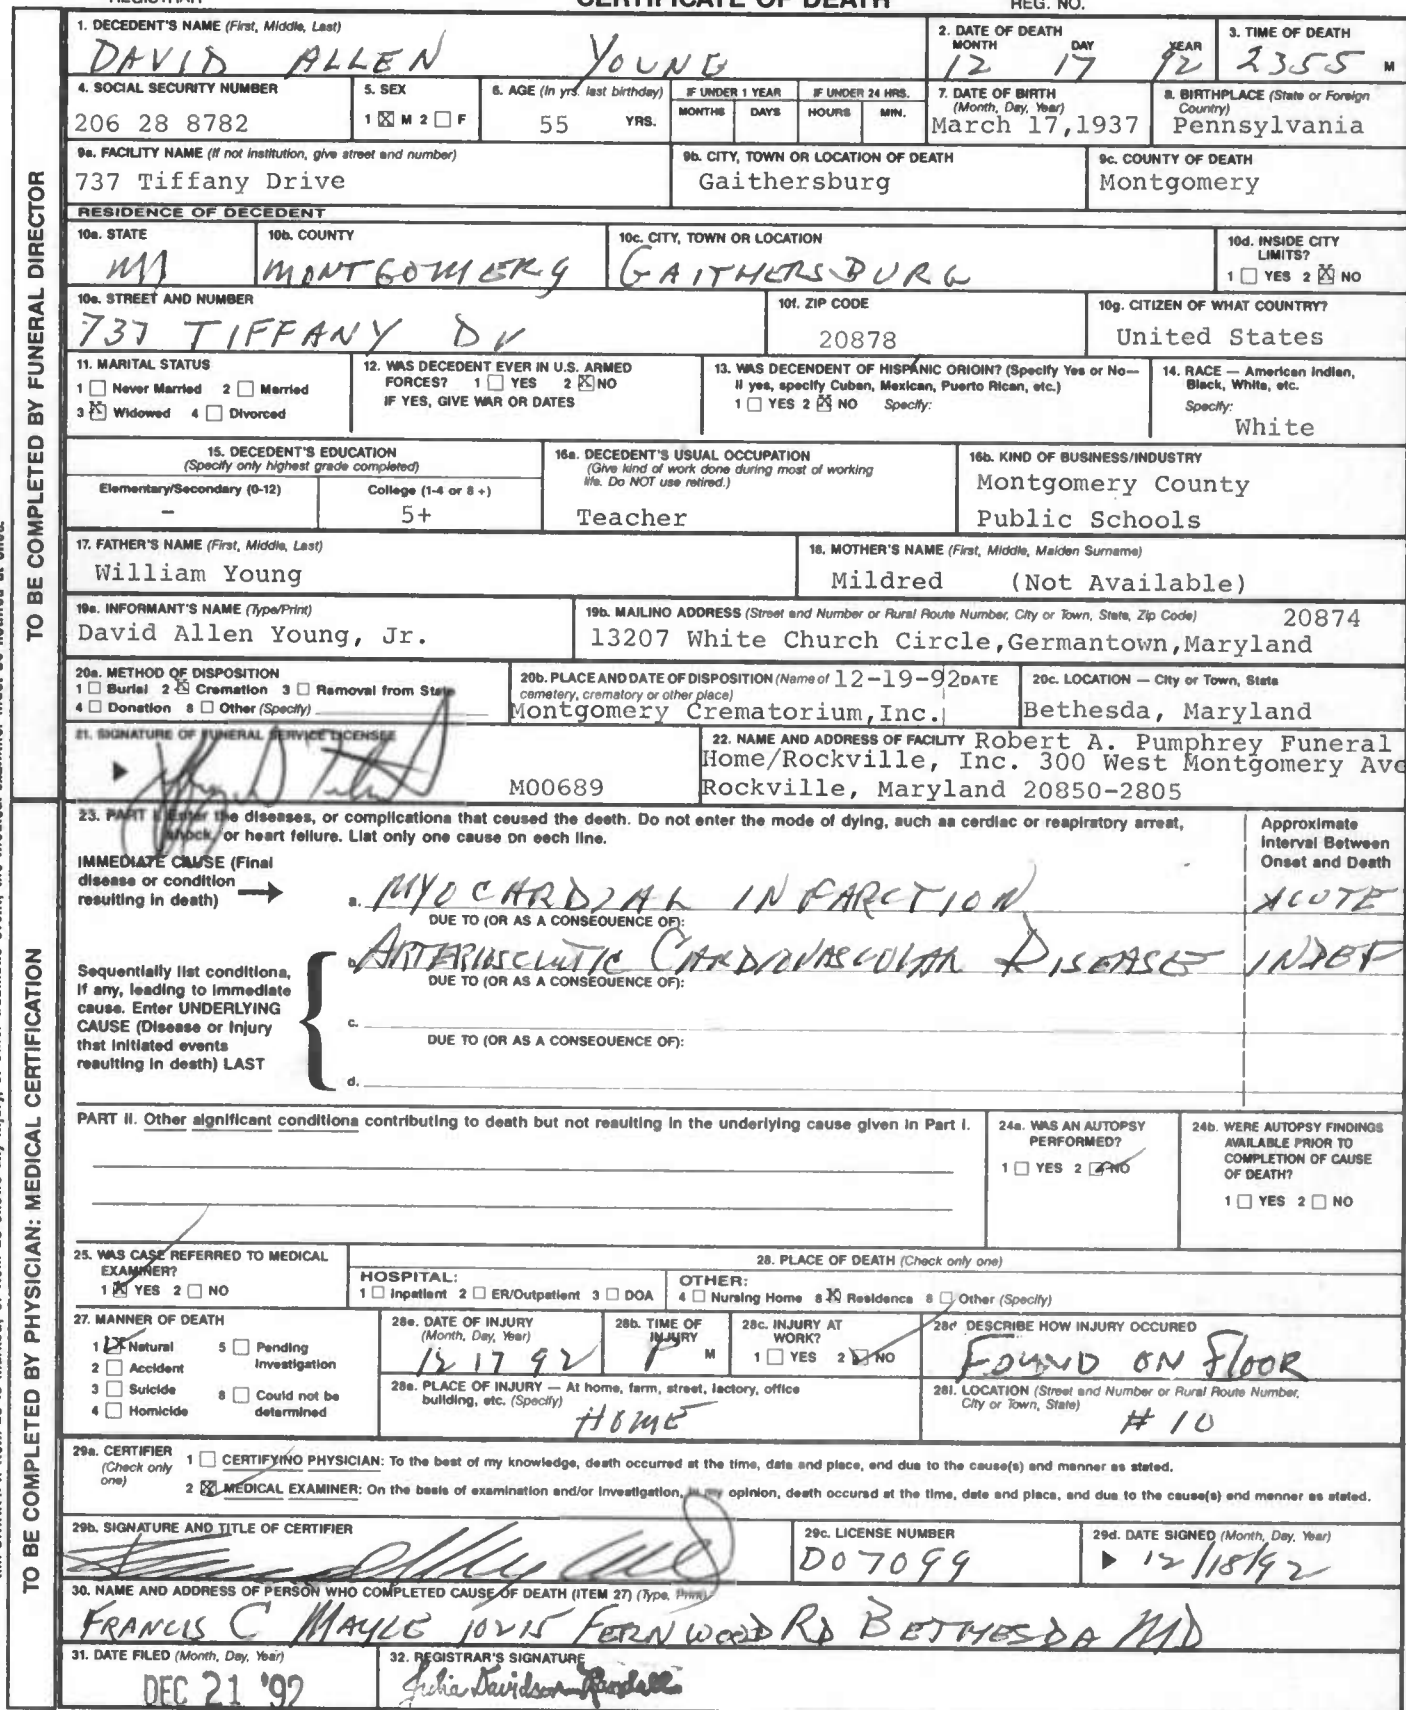 CERTIFICATE OF DEATH
REGISTRAR
REG. NO.
TO BE COMPLETED BY FUNERAL DIRECTOR
1. DECEDENT'S NAME (First, Middle, Last)
DAVID ALLEN YOUNG
2. DATE OF DEATH
MONTH DAY YEAR
12 17 92
3. TIME OF DEATH
2355 M
4. SOCIAL SECURITY NUMBER
206 28 8782
5. SEX
1 ☒ M 2 ☐ F
6. AGE (In yrs. last birthday)
55 YRS.
IF UNDER 1 YEAR
MONTHS DAYS
IF UNDER 24 HRS.
HOURS MIN.
7. DATE OF BIRTH
(Month, Day, Year)
March 17,1937
8. BIRTHPLACE (State or Foreign
Country)
Pennsylvania
9a. FACILITY NAME (If not institution, give street and number)
737 Tiffany Drive
9b. CITY, TOWN OR LOCATION OF DEATH
Gaithersburg
9c. COUNTY OF DEATH
Montgomery
RESIDENCE OF DECEDENT
10a. STATE
MD
10b. COUNTY
MONTGOMERY
10c. CITY, TOWN OR LOCATION
GAITHERSBURG
10d. INSIDE CITY
LIMITS?
1 ☐ YES 2 ☒ NO
10e. STREET AND NUMBER
737 TIFFANY Dr
10f. ZIP CODE
20878
10g. CITIZEN OF WHAT COUNTRY?
United States
11. MARITAL STATUS
1 ☐ Never Married 2 ☐ Married
3 ☒ Widowed 4 ☐ Divorced
12. WAS DECEDENT EVER IN U.S. ARMED
FORCES? 1 ☐ YES 2 ☒ NO
IF YES, GIVE WAR OR DATES
13. WAS DECENDENT OF HISPANIC ORIGIN? (Specify Yes or No—
If yes, specify Cuban, Mexican, Puerto Rican, etc.)
1 ☐ YES 2 ☒ NO Specify:
14. RACE — American Indian,
Black, White, etc.
Specify:
White
15. DECEDENT'S EDUCATION
(Specify only highest grade completed)
Elementary/Secondary (0-12)
–
College (1-4 or 8 +)
5+
16a. DECEDENT'S USUAL OCCUPATION
(Give kind of work done during most of working
life. Do NOT use retired.)
Teacher
16b. KIND OF BUSINESS/INDUSTRY
Montgomery County
Public Schools
17. FATHER'S NAME (First, Middle, Last)
William Young
18. MOTHER'S NAME (First, Middle, Maiden Surname)
Mildred (Not Available)
19a. INFORMANT'S NAME (Type/Print)
David Allen Young, Jr.
19b. MAILING ADDRESS (Street and Number or Rural Route Number, City or Town, State, Zip Code) 20874
13207 White Church Circle,Germantown,Maryland
20a. METHOD OF DISPOSITION
1 ☐ Burial 2 ☒ Cremation 3 ☐ Removal from State
4 ☐ Donation 8 ☐ Other (Specify)
20b. PLACE AND DATE OF DISPOSITION (Name of 12-19-92 DATE
cemetery, crematory or other place)
Montgomery Crematorium,Inc.
20c. LOCATION — City or Town, State
Bethesda, Maryland
21. SIGNATURE OF FUNERAL SERVICE LICENSEE
M00689
22. NAME AND ADDRESS OF FACILITY Robert A. Pumphrey Funeral
Home/Rockville, Inc. 300 West Montgomery Ave
Rockville, Maryland 20850-2805
TO BE COMPLETED BY PHYSICIAN: MEDICAL CERTIFICATION
23. PART I. Enter the diseases, or complications that caused the death. Do not enter the mode of dying, such as cardiac or respiratory arrest,
shock, or heart failure. List only one cause on each line.
Approximate
Interval Between
Onset and Death
IMMEDIATE CAUSE (Final
disease or condition
resulting in death)
a. MYOCARDIAL INFARCTION ACUTE
DUE TO (OR AS A CONSEQUENCE OF):
Sequentially list conditions,
if any, leading to immediate
cause. Enter UNDERLYING
CAUSE (Disease or injury
that initiated events
resulting in death) LAST
b. ARTERIOSCLUTIC CARDIOVASCULAR DISEASE INDEF
DUE TO (OR AS A CONSEQUENCE OF):
c.
DUE TO (OR AS A CONSEQUENCE OF):
d.
PART II. Other significant conditions contributing to death but not resulting in the underlying cause given in Part I.
24a. WAS AN AUTOPSY
PERFORMED?
1 ☐ YES 2 ☑ NO
24b. WERE AUTOPSY FINDINGS
AVAILABLE PRIOR TO
COMPLETION OF CAUSE
OF DEATH?
1 ☐ YES 2 ☐ NO
25. WAS CASE REFERRED TO MEDICAL
EXAMINER?
1 ☒ YES 2 ☐ NO
28. PLACE OF DEATH (Check only one)
HOSPITAL:
1 ☐ Inpatient 2 ☐ ER/Outpatient 3 ☐ DOA
OTHER:
4 ☐ Nursing Home 8 ☒ Residence 8 ☐ Other (Specify)
27. MANNER OF DEATH
1 ☒ Natural 5 ☐ Pending
Investigation
2 ☐ Accident
3 ☐ Suicide 8 ☐ Could not be
determined
4 ☐ Homicide
28a. DATE OF INJURY
(Month, Day, Year)
12 17 92
28b. TIME OF
INJURY
P M
28c. INJURY AT
WORK?
1 ☐ YES 2 ☑ NO
28d. DESCRIBE HOW INJURY OCCURED
FOUND ON FLOOR
28e. PLACE OF INJURY — At home, farm, street, factory, office
building, etc. (Specify)
HOME
28f. LOCATION (Street and Number or Rural Route Number,
City or Town, State)
# 10
29a. CERTIFIER
(Check only
one)
1 ☐ CERTIFYING PHYSICIAN: To the best of my knowledge, death occurred at the time, date and place, and due to the cause(s) and manner as stated.
2 ☒ MEDICAL EXAMINER: On the basis of examination and/or investigation, in my opinion, death occured at the time, date and place, and due to the cause(s) and manner as stated.
29b. SIGNATURE AND TITLE OF CERTIFIER
29c. LICENSE NUMBER
D07099
29d. DATE SIGNED (Month, Day, Year)
12/18/92
30. NAME AND ADDRESS OF PERSON WHO COMPLETED CAUSE OF DEATH (ITEM 27) (Type, Print)
FRANCIS C MAYLE 10215 FERNWOOD RD BETHESDA MD
31. DATE FILED (Month, Day, Year)
DEC 21 '92
32. REGISTRAR'S SIGNATURE
Julia Davidson-Randall